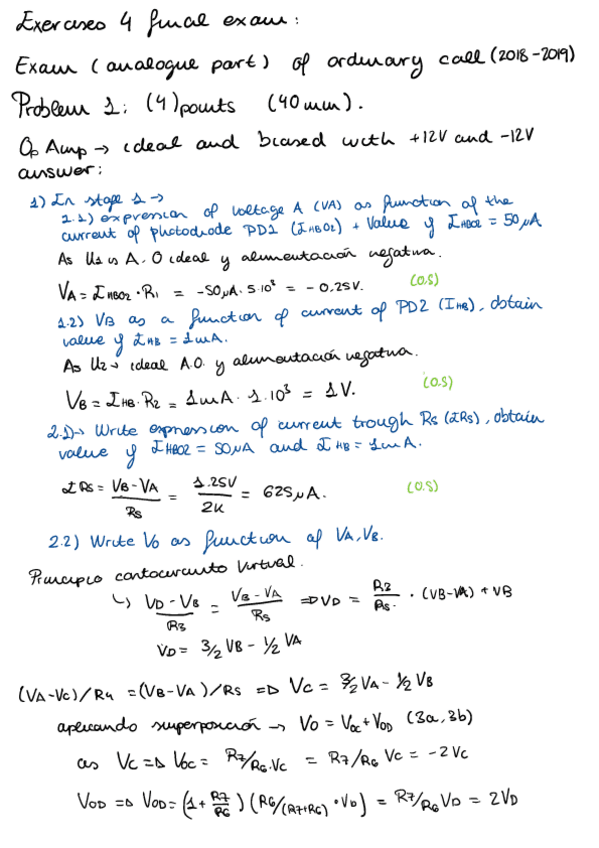 Exercises 4 final exam:
Exam (analogue part) of ordinary call (2018-2019)
Problem 1: (4) points (40 min).
Op Amp → ideal and biased with +12V and -12V
answer:
1) In stage 1 →
1.1) expression of voltage A (VA) as function of the
current of photodiode PD2 (I HBO2) + Value if I HBO2 = 50 μA
As U1 is A.O ideal y alimentación negativa.
VA = I HBO2 · R1 = -50μA · 5·10³ = -0,25V. (0.5)
1.2) VB as a function of current of PD2 (I HB), obtain
value if I HB = 1mA.
As U2 → ideal A.O. y alimentación negativa.
VB = I HB · R2 = 1mA · 1·10³ = 1V. (0.5)
2.1) → Write expression of current trough Rs (IRs), obtain
value if I HBO2 = 50μA and I HB = 1mA.
IRs = VB - VA / Rs = 1.25V / 2K = 625μA. (0.5)
2.2) Write Vo as function of VA, VB.
Principio contocircuito virtual.
↳ VD - VB / R3 = VB - VA / Rs ⇒ VD = R3 / Rs · (VB-VA) + VB
VD = 3/2 VB - 1/2 VA
(VA-Vc)/R4 = (VB-VA)/R5 ⇒ Vc = 3/2 VA - 1/2 VB
aplicando superposición → Vo = Voc + VOD (3a, 3b)
as Vc ⇒ Voc = R7/R6·Vc = R7/R6 Vc = -2Vc
VOD ⇒ VOD = (1 + R7/R6) (R6/(R7+R6) · VD) = R7/R6 VD = 2VD